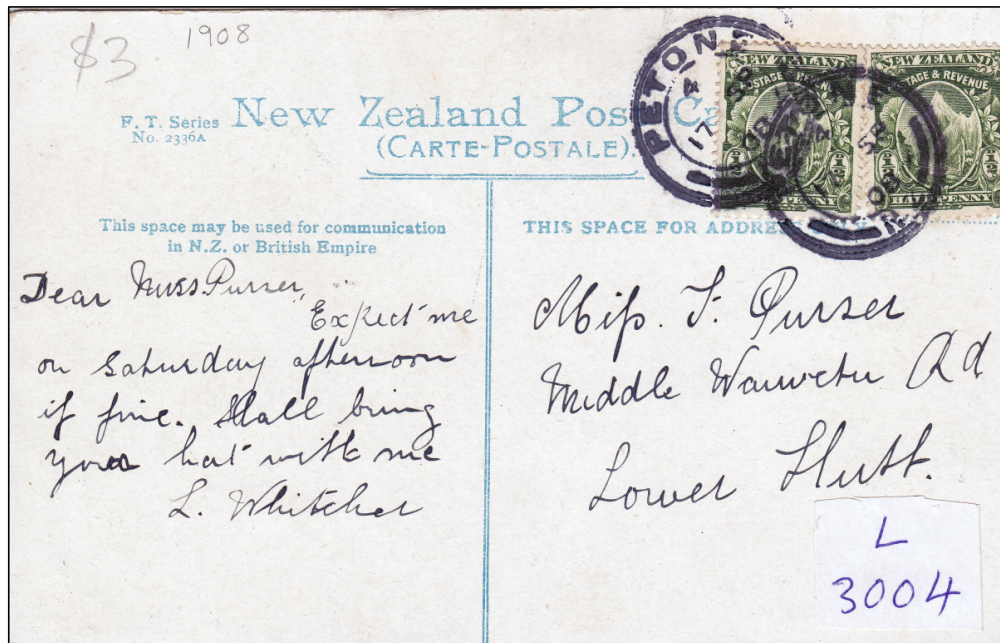 $3
1908
F. T. Series
No. 2336A
New Zealand Post Ca
(CARTE-POSTALE)
PETONE
4
17 SP
08
NEW ZEALAND
POSTAGE & REVENUE
1/2 1/2
HALF PENNY
NEW ZEALAND
POSTAGE & REVENUE
1/2
HALF PENNY
SP
08
This space may be used for communication
in N.Z. or British Empire
THIS SPACE FOR ADDRESS ONLY
Dear Miss Purser,
Expect me
on Saturday afternoon
if fine. Shall bring
your hat with me
L. Whitcher
Miss. F. Purser
Middle Waiwetu Rd
Lower Hutt.
L
3004